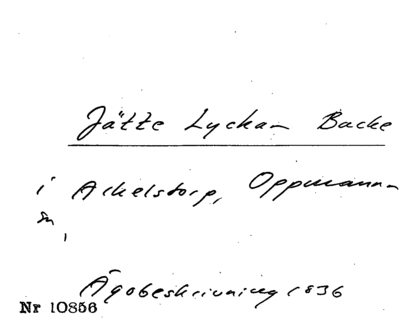 Jätte Lyckan Backe
i Arkelstorp, Oppmanna
sn,
Ägobeskrivning 1836
Nr 10856